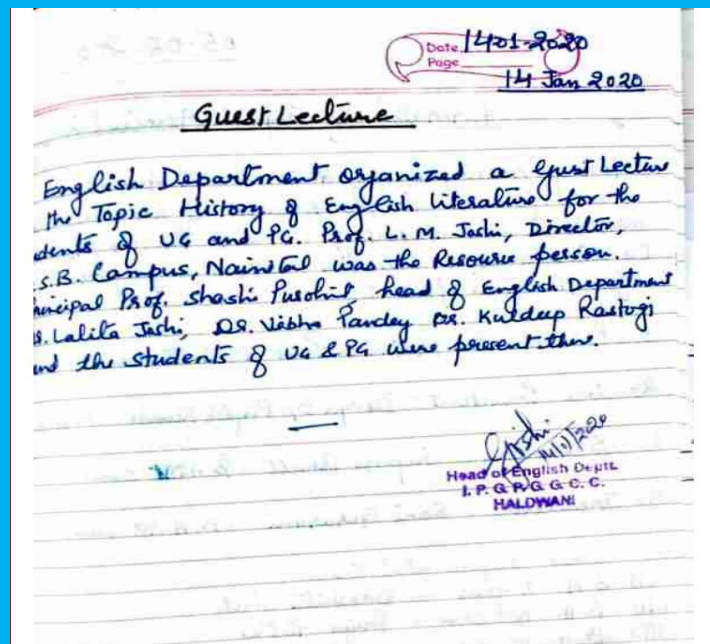 Date 14-01-2020
Page
14 Jan 2020
Guest Lecture
English Department organized a Guest Lecture
the Topic History of English literature for the
dents of UG and PG. Prof. L. M. Joshi, Director,
.S.B. Campus, Nainital was the Resource person.
rincipal Prof. Shashi Purohit, head of English Department
s. Lalita Joshi, Dr. Vibha Pandey Dr. Kuldeep Rastogi
and the students of UG & PG were present there.
14/1/2020
Head of English Deptt.
I. P. G. P. G. G. C. C.
HALDWANI